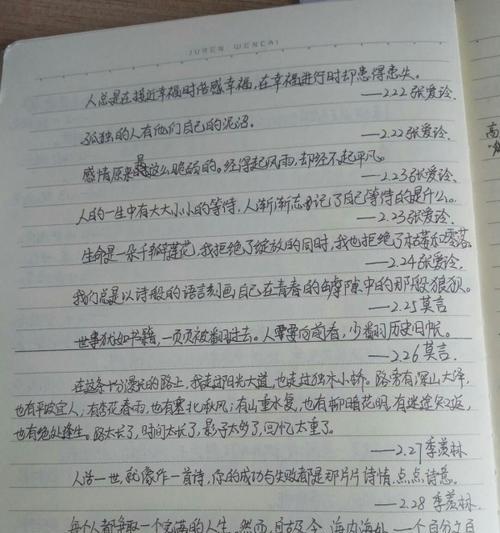 JUREN WENCAI
人总是在接近幸福时倍感幸福，在幸福进行时却患得患失。
——2.22张爱玲.
孤独的人有他们自己的泥沼。
——2.22张爱玲.
感情原来是这么脆弱的。经得起风雨，却经不起平凡。
——2.23张爱玲.
人的一生中有大大小小的等待，人渐渐忘记了自己等待的是什么。
——2.23张爱玲.
生命是一朵千瓣莲花，我拒绝了绽放的同时，我也拒绝了枯萎和零落.
——2.24张爱玲.
我们总是以诗般的语言刻画自己在青春的罅隙中的那段狼狈。
——2.25莫言
世事犹如书籍，一页页被翻过去。人需要向前看，少翻历史旧帐。
——2.26莫言.
在这条十分漫长的路上，我走过阳光大道，也走过独木小桥。路旁有深山大泽，
也有平坡宜人；有杏花春雨，也有塞北秋风；有山重水复，也有柳暗花明，有迷途知返，
也有绝处逢生。路太长了，时间太长了，影子太多了，回忆太重了。
——2.27季羡林
人活一世，就像作一首诗，你的成功与失败都是那片片诗情，点点诗意.
——2.28季羡林.
每个人都争取一个完满的人生。然而，自古及今，海内海外，一个百分之百
高